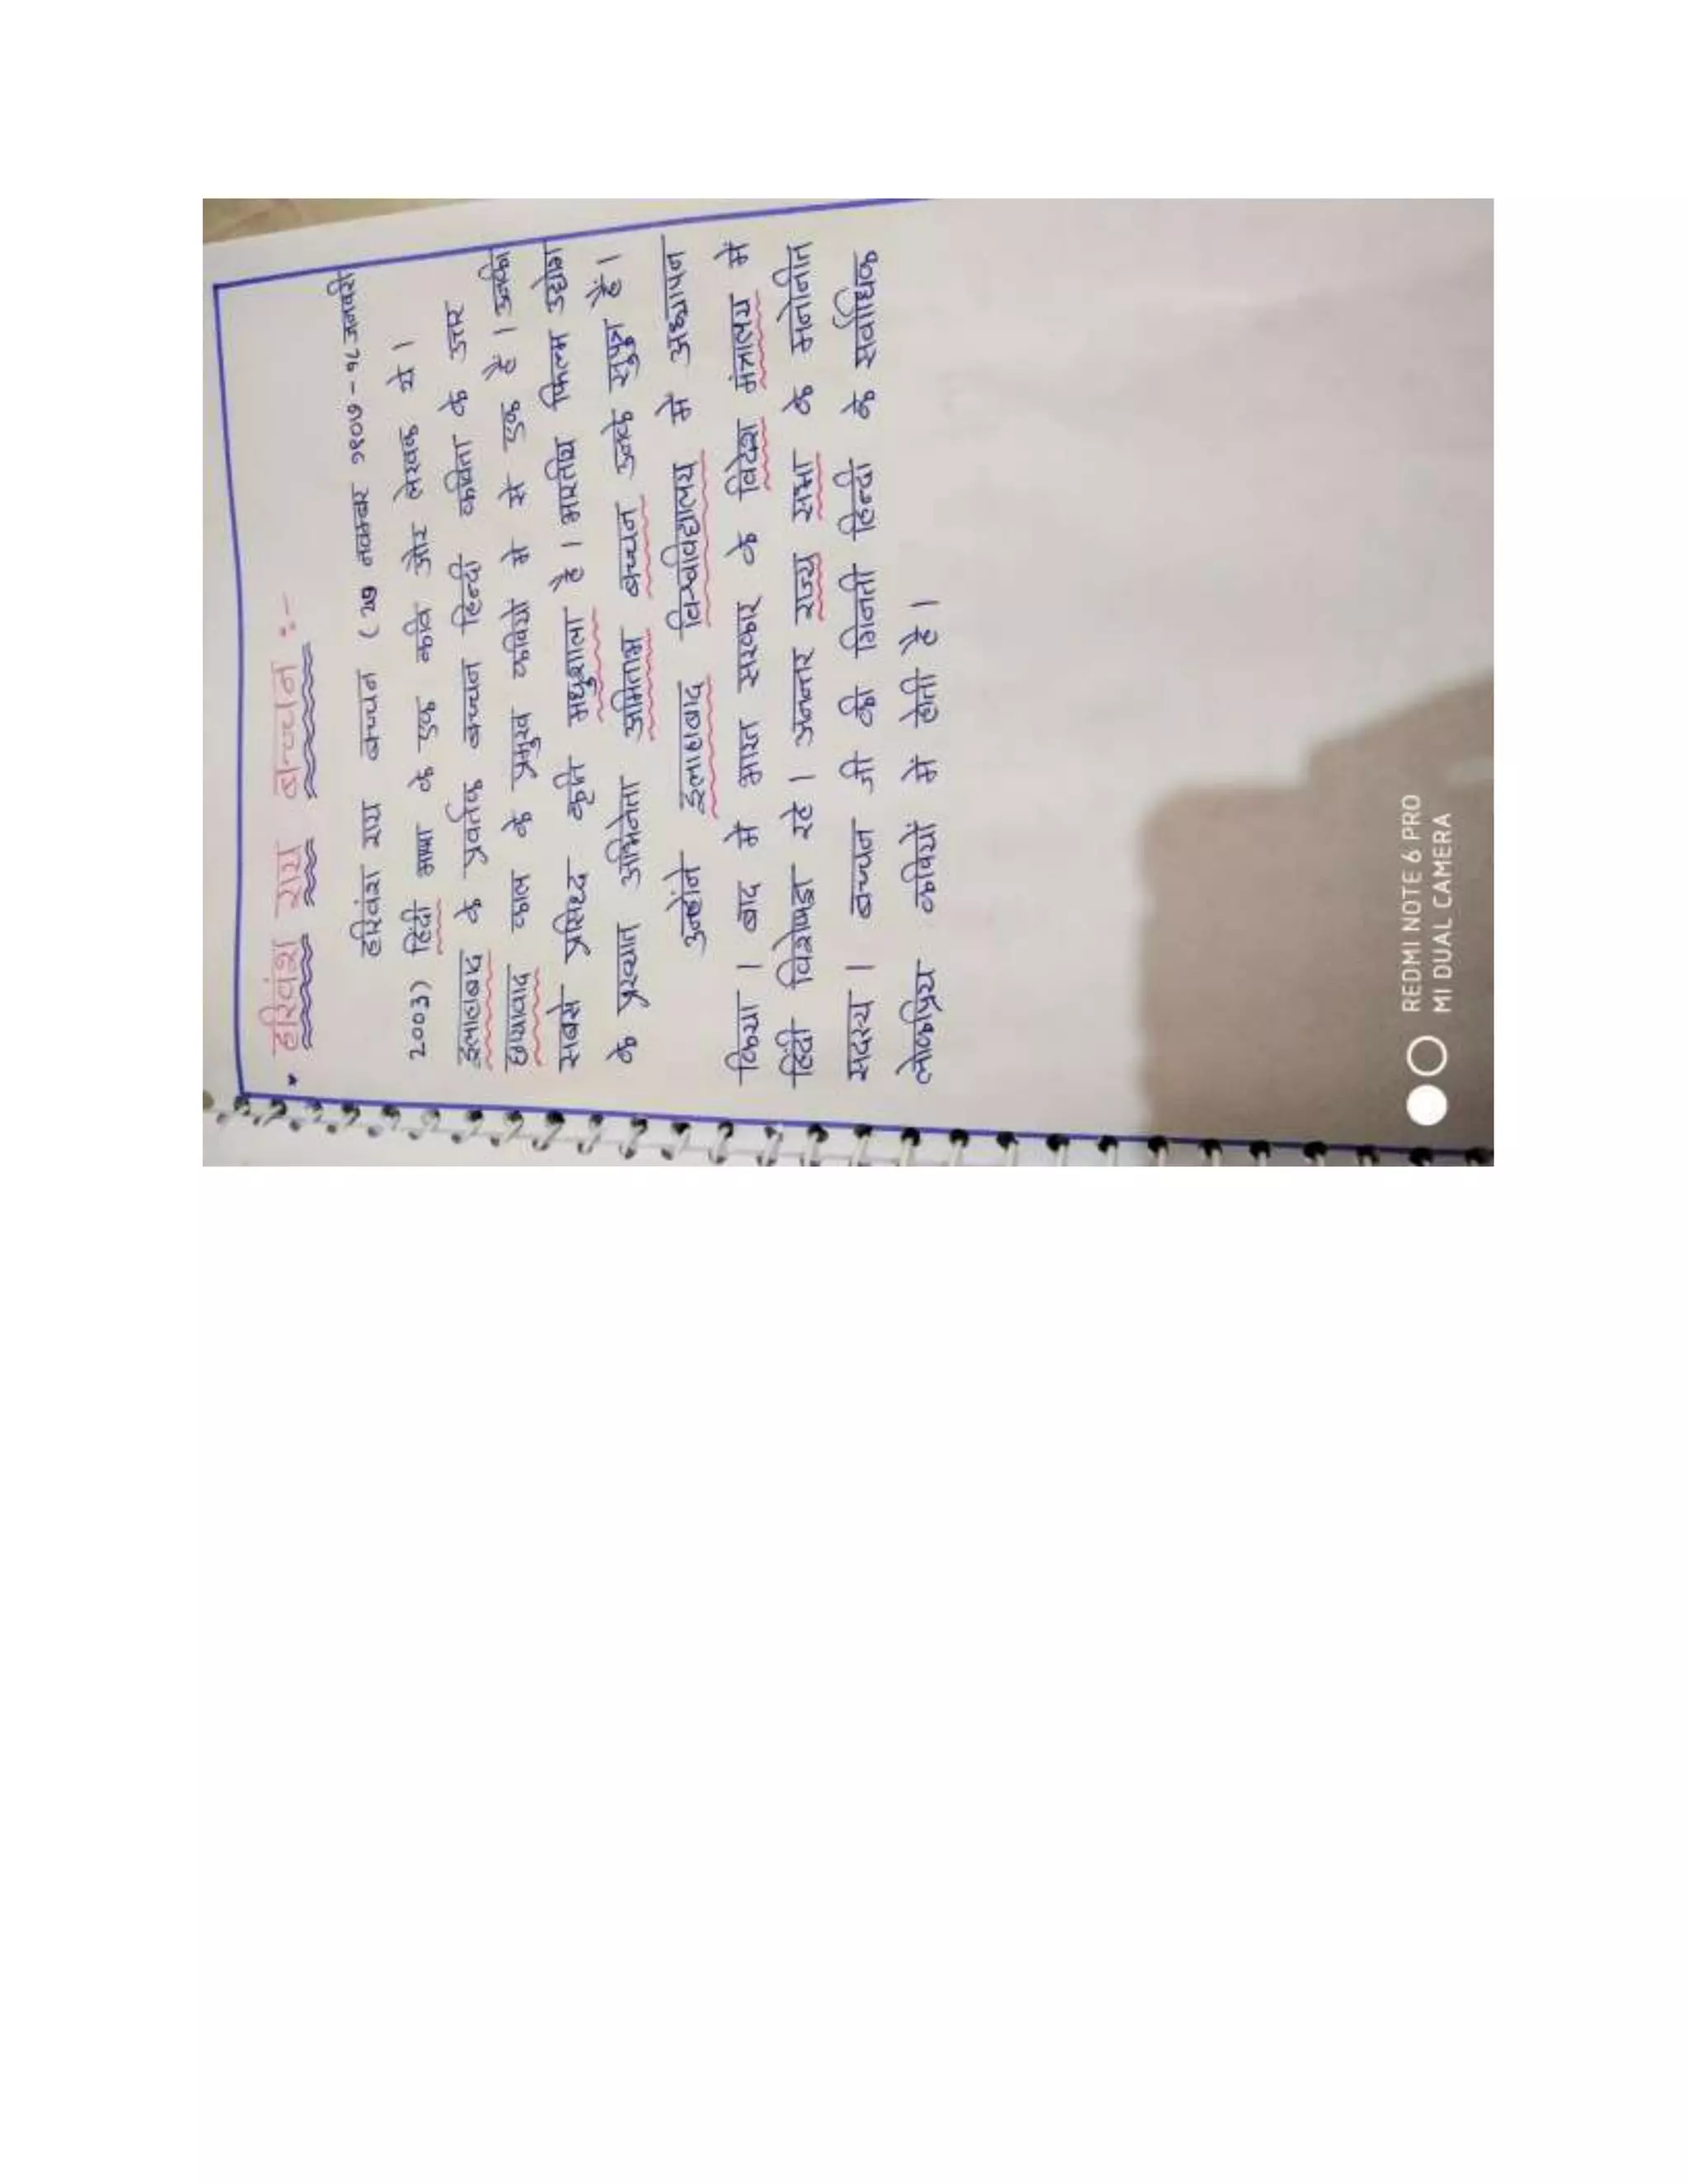 * हरिवंश राय बच्चन :-
हरिवंश राय बच्चन (२७ नवम्बर १९०७ - १८ जनवरी
2003) हिंदी भाषा के एक कवि और लेखक थे।
इलाहाबाद के प्रवर्तक बच्चन हिन्दी कविता के उत्तर
छायावाद काल के प्रमुख कवियों मे से एक है। उनकी
सबसे प्रसिध्द कृति मधुशाला है। भारतीय फिल्म उद्योग
के प्रख्यात अभिनेता अमिताभ बच्चन उनके सुपुत्र हैं।
उन्होंने इलाहाबाद विश्वविद्यालय में अध्यापन
किया। बाद में भारत सरकार के विदेश मंत्रालय में
हिंदी विशेषज्ञ रहे। अनन्तर राज्य सभा के मनोनीत
सदस्य। बच्चन जी की गिनती हिन्दी के सर्वाधिक
लोकप्रिय कवियों में होती है।
REDMI NOTE 6 PRO
MI DUAL CAMERA